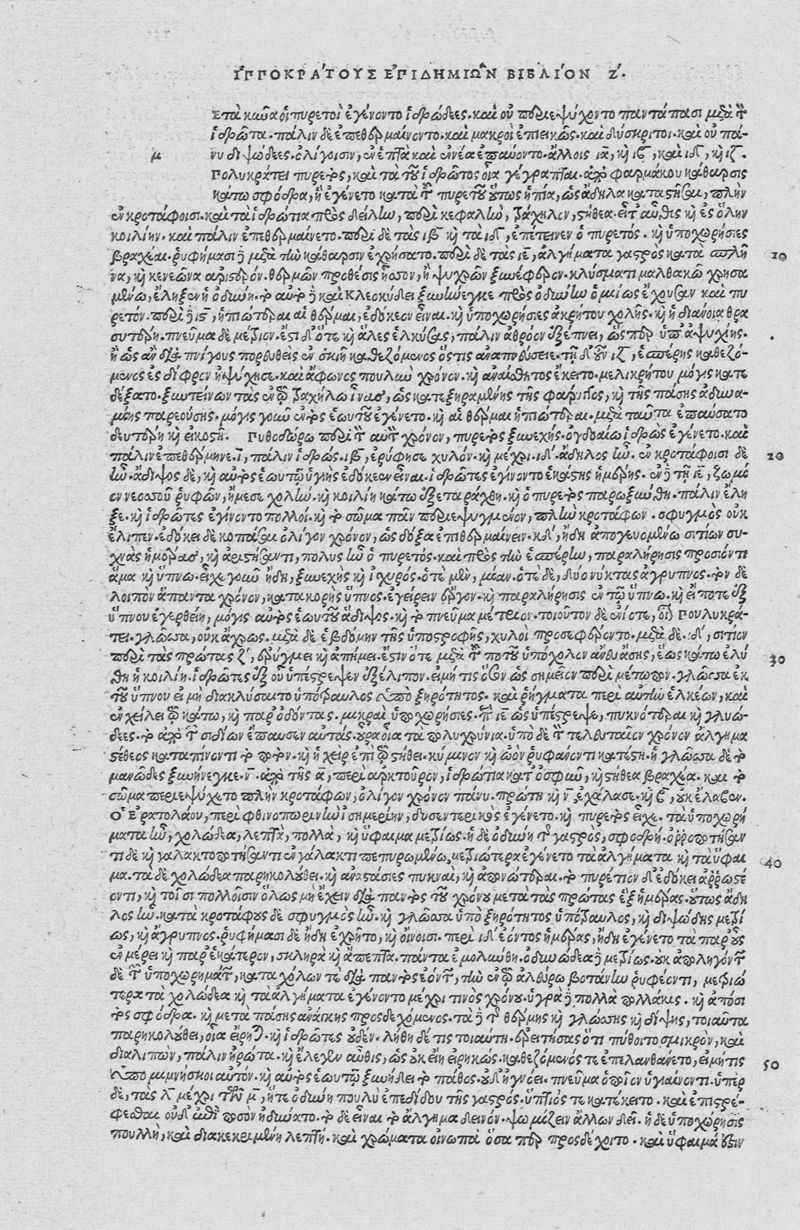 ἹΠΠΟΚΡΑΤΟΥΣ ἘΠΙΔΗΜΙΩ͂Ν ΒΙΒΛΙΌΝ Ζ.
Ἑτὰ κύνα οἱ πυρετοὶ ἐγένοντο ἱδρώδεες. καὶ οὐ περιεψύχοντο παντάπασι μετὰ τὸν
ἱδρῶτα. πάλιν δὲ ἐπεθερμαίνοντο. καὶ μακροὶ ἐπιεικῶς. καὶ δύσκριτοι. καὶ οὐ πά-
μ
νυ διψώδεες. ὀλίγοισιν, ἐν ἑπτὰ καὶ ἐννέα ἐπαύοντο. ἄλλοις ια, κỳ ιζ, καὶ ιδ, κỳ ιζ.
Πολυκράτει πυρετὸς, καὶ τὰ τοῦ ἱδρῶτος οἷα γέγραπται. ἀπὸ φαρμάκου κάθαρσις
κάτω σφόδρα, ἢ ἐγένετο κατὰ τὸν πυρετοῦ οὕτως ἠπία, ὡς ἄδηλα καταστῆσαι, πλὴν
ἐν κροτάφοισι. καὶ τὰ ἱδρώτια πρὸς δείλην, περὶ κεφαλὴν, τράχηλον, στήθεα. εἶτ᾽ αὖθις κỳ ἐς ὅλην
κοιλίην. καὶ πάλιν ἐπεθερμαίνετο. περὶ δὲ τὰς ιβ κỳ τὰ ιδ, ἐπέτεινεν ὁ πυρετός. κỳ ὑποχωρήσιες
βραχέαι. ῥυφήμασι δὲ μετὰ τὴν κάθαρσιν ἐχρήσατο. περὶ δὲ τὰς ιε, ἀλγήματα γαστρὸς κατὰ σπλῆ
10
να, κỳ κενεῶνα ἀριστερόν. θερμῶν προθέσις ἧσσον, ἢ ψυχρῶν ξυνέφερον. κλύσματι μαλθακῷ χρησα
μένῳ, ἔληξεν ἡ ὀδύνη. τὸ αὐτὸ δὲ καὶ Κλεοκύδει ξυνήνεγκε πρὸς ὀδύνην ὁμοίως ἔχουσαν καὶ πυ
ρετόν. περὶ δὲ ις, ἠπιώτεραι αἱ θέρμαι, ἐδόκεον εἶναι. κỳ ὑποχωρήσιες ἀκρήτου χολῆς. κỳ ἡ διάνοια θρα
συτέρη. πνεῦμα δὲ μέτριον. ἔστι δ᾽ ὅτε κỳ ἁλὲς ἑλκύσας, πάλιν ἀθρόον ἐξέπνει, ὥσπερ ὑπὸ ἀψυχίης.
ἢ ὡς ἂν διὰ πνίγους πορευθεὶς ἐν σκιῇ καθεζόμενος ὅστις ἀναπνεύσειε. τῇ δ᾽ οὖν ιζ, ἑσπέρης καθεζό-
μενος ἐς δίφρον ἠψύχησε. καὶ ἄφωνος πουλὺν χρόνον. κỳ ἀναίσθητος ἔκειτο. μελικρήτου μόγις κατε
δέξατο. ξυντείνων τὰς ἐν τῷ τραχήλῳ ἶνας, ὡς κεξηραμένης τῆς φάρυγγος, κỳ τῆς πάσης ἀδυνα-
μίης παρεούσης. μόγις γοῦν ἐντὸς ἑωυτοῦ ἐγένετο. κỳ αἱ θέρμαι ἠπιώτεραι. μετὰ ταῦτα ἐπαύσατο
δευτέρη κỳ εἰκοστῇ. Πυθοδώρῳ περὶ τὸν αὐτὸν χρόνον, πυρετὸς ξυνεχής. ὀγδοαίῳ ἱδρὼς ἐγένετο. καὶ
20
πάλιν ἐπεθέρμηνε. ι, πάλιν ἱδρώς. ιβ, ἐρύφησε χυλόν. κỳ μέχρι. ιδ. ἄδηλος ἦν. ἐν κροτάφοισι δὲ
ἦν. ἄδιψος δὲ, κỳ αὐτὸς ἑωυτῷ ὑγιὴς ἐδόκεεν εἶναι. ἱδρῶτες ἐγίνοντο ἑκάστης ἡμέρης. ἐν δὲ τῇ ιε, ζωμὸν
νεοσσοῦ ῥυφῶν, ἤμεσε χολὴν. κỳ κοιλίη κάτω ἐξεταράχθη. κỳ ὁ πυρετὸς παρωξύνθη. πάλιν ἔλη
ξε. κỳ ἱδρῶτες ἐγίνοντο πολλοί. κỳ τὸ σῶμα πᾶν περιεψυγμένον, πλὴν κροτάφων. σφυγμὸς οὐκ
ἔλιπεν. ἐδόκει δὲ κοπάσαι ὀλίγον χρόνον, ὡς δόξαι ἐπιθερμαίνειν. κδ, ἤδη ἀπογευομένῳ σιτίων συ-
χνὰς ἡμέρας, κỳ ἀριστήσαντι, πολὺς ἦν ὁ πυρετός. καὶ πρὸς τὴν ἑσπέρην, παραλήρησις προσιόντι
ἅμα κỳ ὕπνῳ. εἶχε γοῦν ἤδη, ξυνεχὴς κỳ ἰσχυρός. ὁτὲ μὲν, μίαν. ὁτὲ δὲ, δύο νύκτας ἄγρυπνος. τὸν δὲ
λοιπὸν ἅπαντα χρόνον, κατακορὴς ὕπνος. ἐγείρειν ἔργον. κỳ παραλήρησις ἐν τῷ ὕπνῳ. κỳ εἴ ποτε ἐξ
ὕπνου ἐγερθείη, μόγις αὐτὸς ἑωυτοῦ. ἄδιψος. κỳ τὸ πνεῦμα μέτριον. τοιοῦτον δὲ ἐνίοτε, οἷον Πουλυκρά-
τει. γλῶσσα, οὐκ ἄχρως. μετὰ δὲ ἑβδόμην τῆς ὑποστροφῆς, χυλοὶ προσεφέροντο. μετὰ δὲ. ιδ, σιτίον
30
περὶ τὰς πρώτας ζ, ἐβρύγμει κỳ ἀπήμει. ἔστιν ὅτε μετὰ τοῦ ποτοῦ ὑπόχολον ἀνεβίασης, ἕως κάτω ἐλύ
θη ἡ κοιλίη. ἱδρῶτες ἐξ οὗ ὑπέστρεψεν ἐξέλιπον. εἰ μή τις ὅσον ὡς σημεῖον περὶ μέτωπον. γλῶσσα ἐκ
τοῦ ὕπνου εἰ μὴ διακλύσαιτο ὑπόφαυλος ὑπὸ ξηρότητος. καὶ ῥήγματα περὶ αὐτὴν ἑλκέων, καὶ
ἐν χείλει τῷ κάτω, κỳ παρ᾽ ὀδόντας. μικραὶ ὑποχωρήσιες. περὶ ιε ὡς ὑπέστρεψε, πυκνότεραι κỳ γλυώ-
δεες. τὸ ἀπὸ τῶν σιδίων ἔπαυσεν αὐτάς. οὖρα οἷα τὰ πολυχρόνια. ὑπὸ δὲ τὸν τελευταῖον χρόνον ἄλγημα
στήθεος καταπίνοντι τὸ ποτόν. κỳ ἡ χεὶρ ἐπὶ τῷ στήθει. κύμινον κỳ ὠὸν ῥυφάνοντι κατέστη. ἡ γλῶσσα δὲ τὸ
μανῶδες ξυνήνεγκε. ν. ἀπὸ τῆς α, περὶ ἀρκτοῦρον, ἱδρώτια κατ᾽ ὀσφὺν, κỳ στήθεα βραχέα. καὶ τὸ
σῶμα περιεψύχετο πλὴν κροτάφων, ὀλίγον χρόνον πάνυ. πρώτη κỳ ν ἐχάλασε. κỳ β, οὐκ ἔλαβεν.
Ὁ Ἐρατολάου, περὶ φθινοπωρινὴν ἰσημερίην, δυσεντερικὸς ἐγένετο. κỳ πυρετὸς εἶχε. τὰ ὑποχωρή
ματα ἦν, χολώδεα, λεπτὰ, πολλὰ, κỳ ὕφαιμα μετρίως. ἡ δὲ ὀδύνη τῆς γαστρὸς, σφοδρή. ὀρροποτήσαν
τι δὲ κỳ γαλακτοποτήσαντι ἐν γάλακτι πεπυρωμένῳ, μετριώτερα ἐγένετο τὰ ἀλγήματα κỳ τὰ ὕφαι
40
μα. τὰ δὲ χολώδεα παρηκολούθει. κỳ ἀναστάσιες πυκναὶ, κỳ ἀπονώτεραι. τὸ πυρέτιον δ᾽ ἐδόκει ἀρρωστέ
οντι, κỳ τοῖσι πολλοῖσιν ὅλως μὴ ἔχειν διὰ παντὸς τοῦ χρόνου μετὰ τὰς πρώτας ἓξ ἡμέρας. οὕτως ἄδη
λος ἦν. κατὰ κροτάφους δὲ σφυγμὸς ἦν. κỳ γλῶσσα ὑπὸ ξηρότητος ὑπόψαυλος, κỳ διψώδης μετρί
ως, κỳ ἄγρυπνος. ῥυφήμασι δὲ ἤδη ἐχρῆτο, κỳ οἴνοισι. περὶ ιδ ἐόντος ἡμέρας, ἤδη ἐγένετο τὰ παρ᾽ οὖς
ἐν μέρει κỳ παρ᾽ ἑκάτερον, σκληρὰ κỳ ἄπεπτα. πάντα ἐμωλύνθη. ὀδυνώδεα δὲ μετρίως. οὐκ ἀπολήγοντ
δὲ τῶν ὑποχωρημάτ, κατὰ χόλων τε διὰ παντὸς ἐόντ, τὴν ἐν τῷ ἀλεύρῳ βοτάνην ῥυφέοντι, μετριώ
τερα τὰ χολώδεα κỳ τὰ ἀλγήματα ἐγένοντο μέχρι τινὸς χρόνου. ὑγρὰ δὲ πολλὰ πολλάκις. κỳ ἀπόσι
τος σφόδρα. κỳ μετὰ πάσης ἀνάγκης προσδεχόμενος. τὰ δὲ τῆς θέρμης κỳ γλώσσης κỳ δίψης, τοιαῦτα
παρηκολούθει, οἷα εἴρηται. κỳ ἱδρῶτες οὐδέν. λήθη δέ τις τοιαύτη. ἐρειτήσας ὅτι πύθοιτο σμικρὸν, καὶ
διαλιπὼν, πάλιν ἠρώτα. κỳ ἔλεγεν αὖθις, ὡς οὐκ εἴη εἰρηκώς. καθεζόμενός τε ἐπελανθάνετο, εἰ μή τις
50
ὑπομιμνήσκοι αὐτόν. κỳ αὐτὸς ἑωυτῷ ξυνῄδει τὸ πάθος. οὐδ᾽ ἠγνόει. πνεῦμα ὁποῖον ὑγιαίνοντι. ὑπὲρ
δὲ, τὰς λ μέχρι τῶν μ, ἥ τε ὀδύνη πουλὺ ἐπεδίδου τῆς γαστρός. ὕπτιός τε κατέκειτο. καὶ ἐπιστρέ-
φεσθαι οὐδ᾽ ἐπὶ ποσὸν ἠδύνατο. τὸ δὲ εἶναι τὸ ἄλγημα δεινόν. ψωμίζειν ἄλλον δεῖ. ἡ δὲ ὑποχώρησις
πουλλὴ, καὶ διακεκριμένη λεπτή. καὶ χρώματα οἰνωπὰ ὅσα περ προσδέχοιτο. καὶ ὕφαιμά ἐστιν